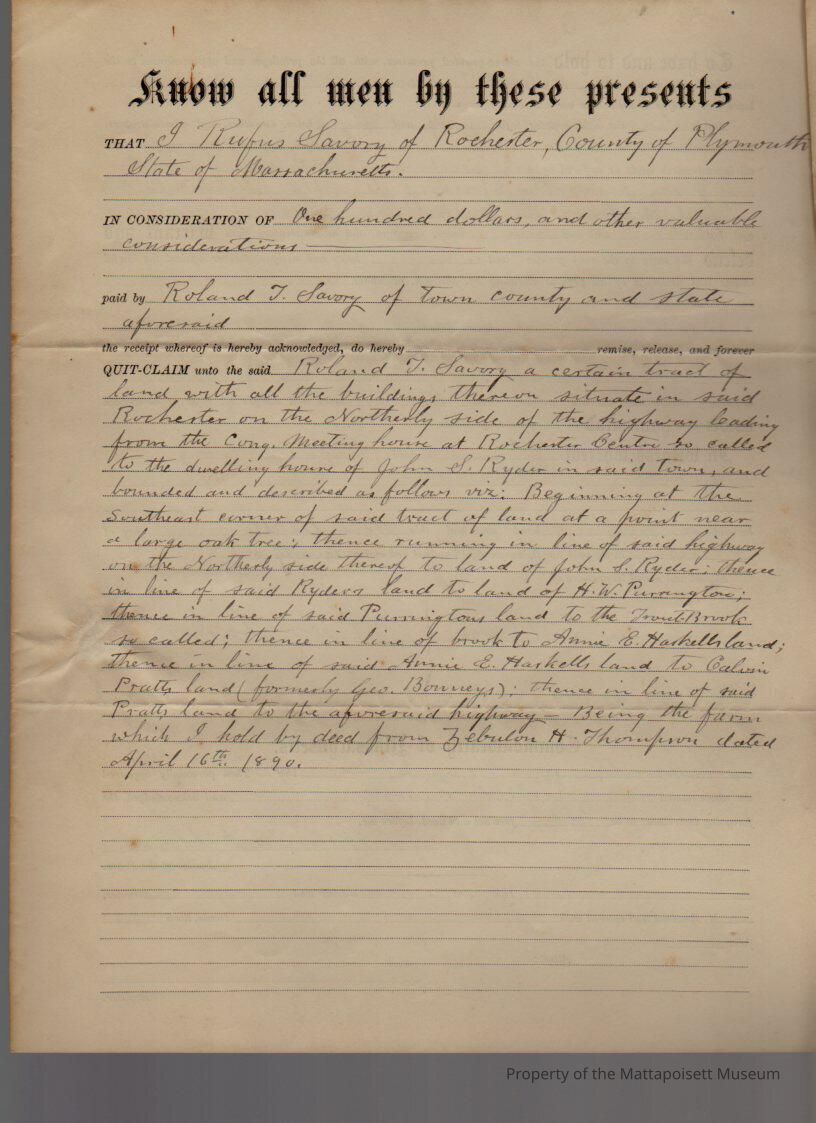 Know all men by these presents
THAT I Rufus Savory of Rochester, County of Plymouth
State of Massachusetts.
IN CONSIDERATION OF One hundred dollars, and other valuable
considerations
paid by Roland T. Savory of town county and state
aforesaid
the receipt whereof is hereby acknowledged, do hereby remise, release, and forever
QUIT-CLAIM unto the said Roland T. Savory a certain tract of
land with all the buildings thereon situate in said
Rochester on the Northerly side of the highway leading
from the Cong. Meeting house at Rochester Centre so called
to the dwelling house of John S. Ryder in said town, and
bounded and described as follows viz: Beginning at the
Southeast corner of said tract of land at a point near
a large oak tree; thence running in line of said highway
on the Northerly side thereof to land of John S. Ryder; thence
in line of said Ryders land to land of H. W. Purrington;
thence in line of said Purringtons land to the Trout Brook
so called; thence in line of brook to Annie E. Haskells land;
thence in line of said Annie E. Haskells land to Calvin
Pratts land (formerly Geo. Bonneys); thence in line of said
Pratts land to the aforesaid highway — Being the farm
which I hold by deed from Zebulon H. Thompson dated
April 16th 1890.
Property of the Mattapoisett Museum